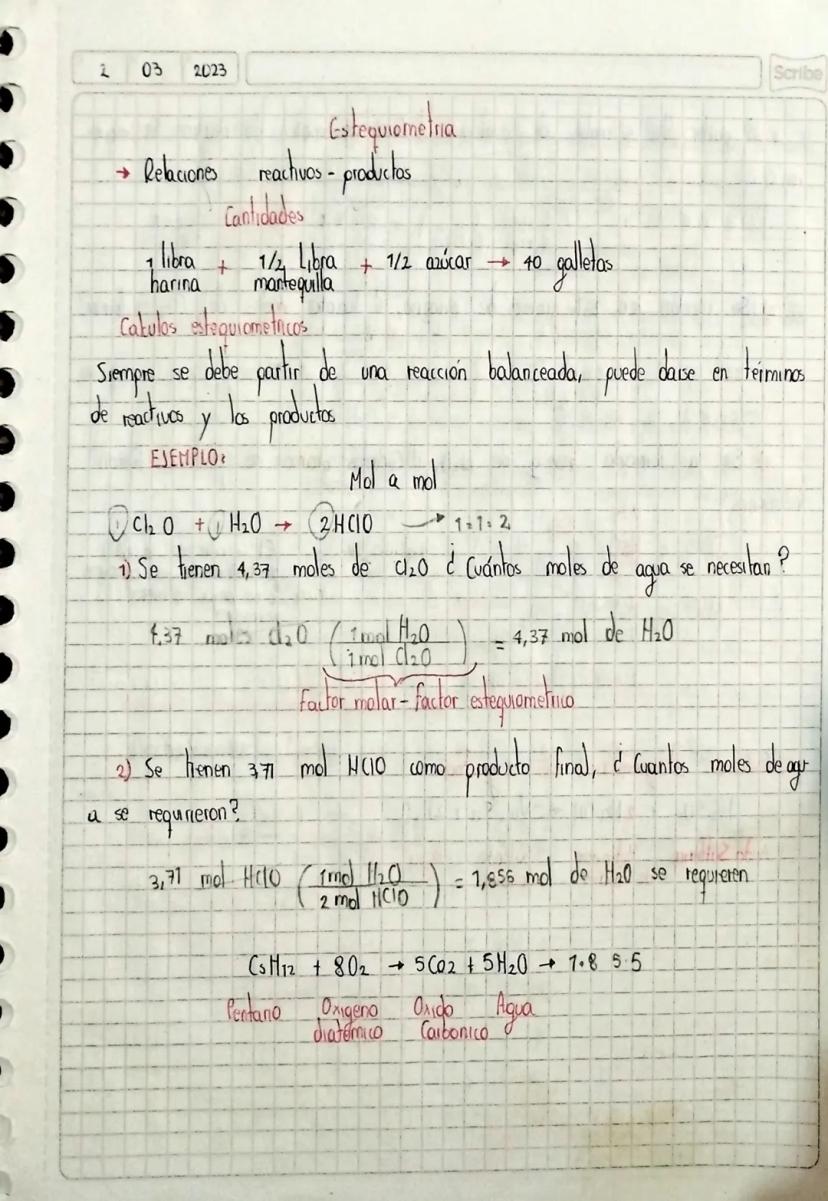 2 03 2023
Scribe
Estequiometria
→ Relaciones reactivos - productos
Cantidades
1 libra + 1/2 Libra + 1/2 azúcar → 40 galletas
harina mantequilla
Calculos estequiometricos
Siempre se debe partir de una reacción balanceada, puede darse en términos
de reactivos y los productos
EJEMPLO:
Mol a mol
1 Cl2O + 1 H2O → 2HClO → 1:1:2
1) Se tienen 4,37 moles de Cl2O ¿ Cuántos moles de agua se necesitan?
4,37 moles Cl2O (1mol H2O / 1mol Cl2O) = 4,37 mol de H2O
Factor molar - factor estequiometrico
2) Se tienen 371 mol HClO como producto final, ¿ Cuantos moles de agu
a se requirieron?
3,71 mol HClO (1mol H2O / 2 mol HClO) = 1,855 mol de H2O se requieren
C5H12 + 8O2 → 5CO2 + 5H2O → 1.8 5.5
Pentano Oxigeno Oxido Agua
diatómico Carbonico